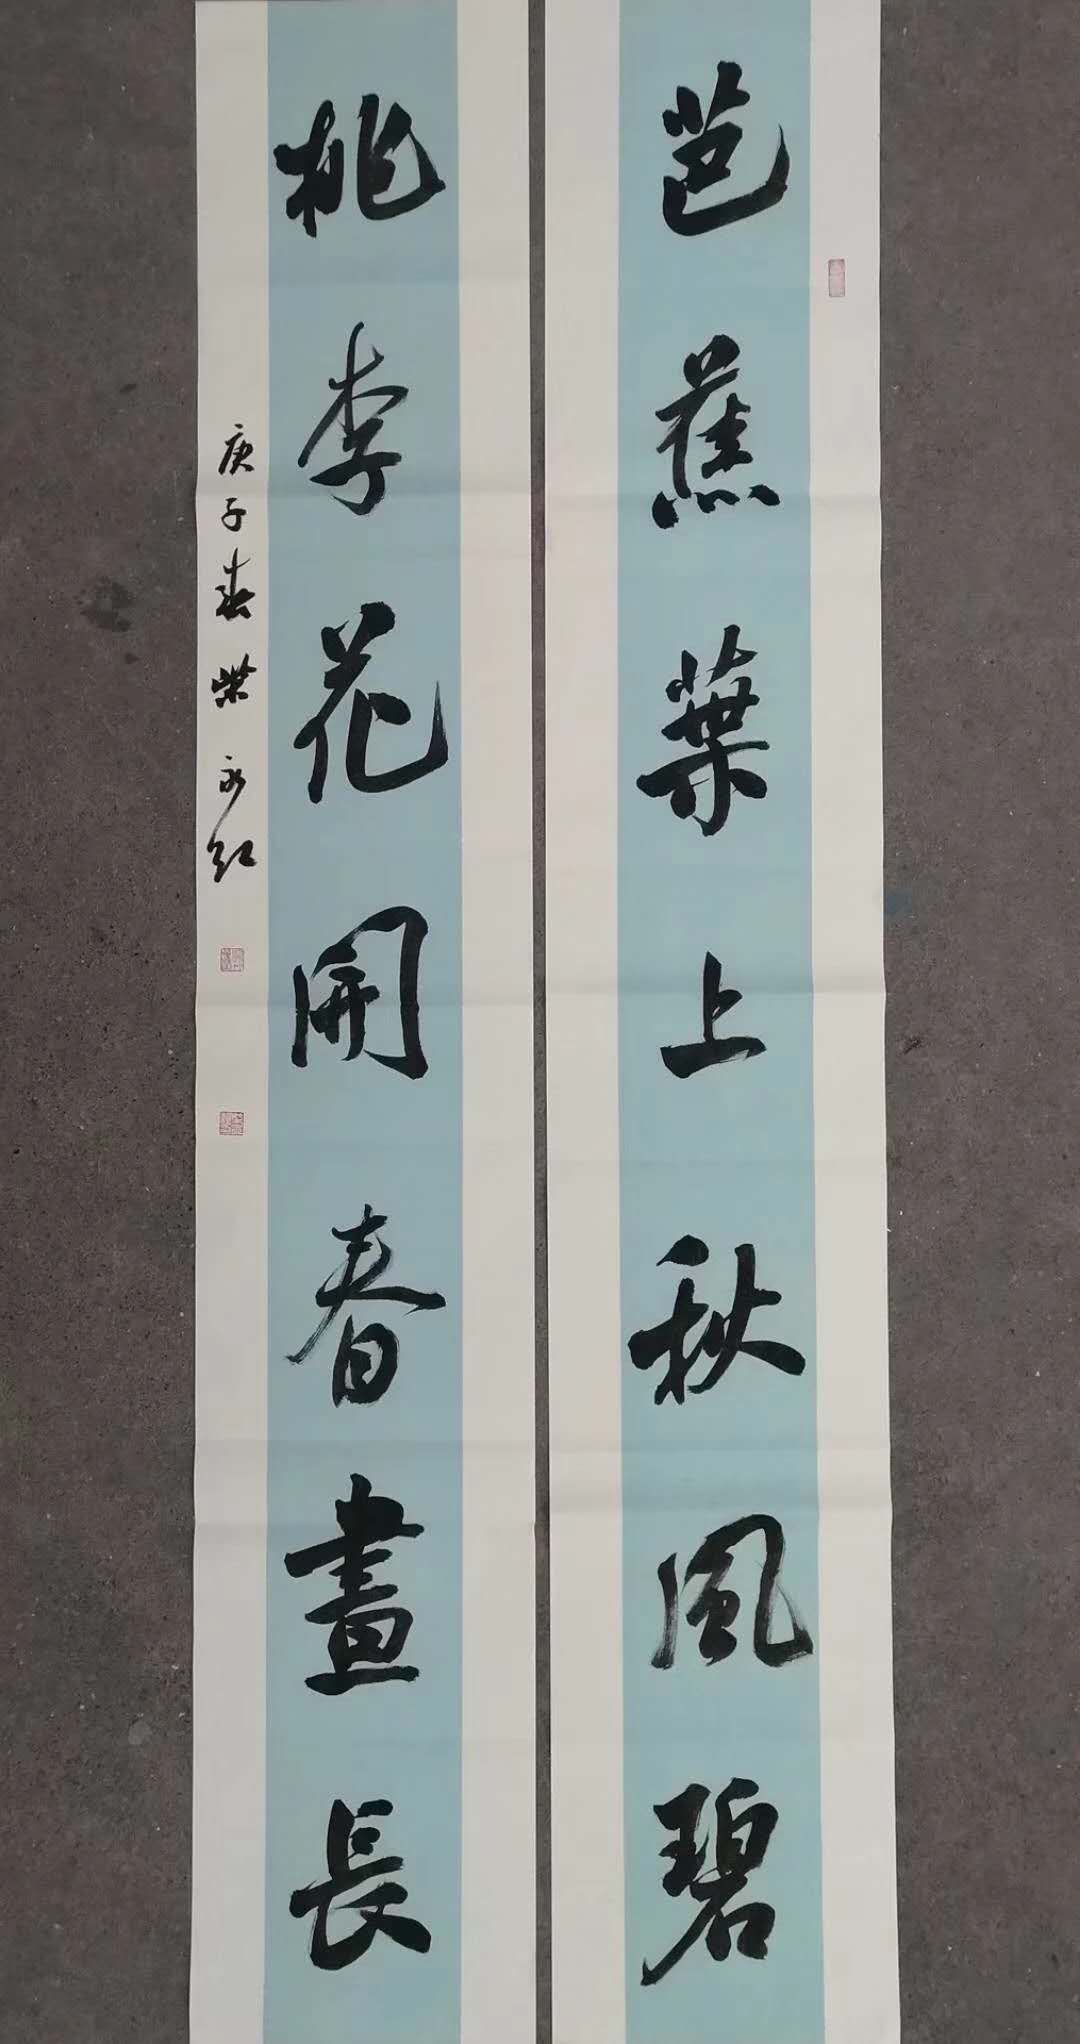 芭蕉葉上秋風碧
桃李花開春晝長
庚子春柴永紅